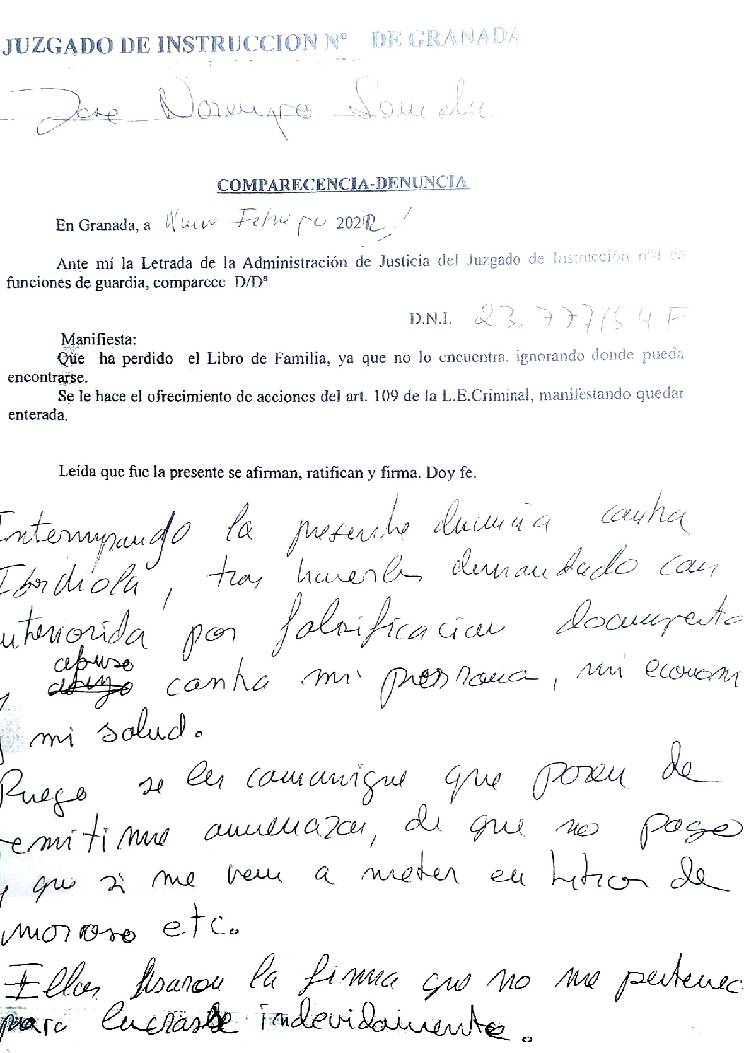 JUZGADO DE INSTRUCCION Nº DE GRANADA
Jose
COMPARECENCIA-DENUNCIA
En Granada, a 202
Ante mí la Letrada de la Administración de Justicia del Juzgado de Instrucción en
funciones de guardia, comparece D/Dª
D.N.I. 23.777154 F
Manifiesta:
Que ha perdido el Libro de Familia, ya que no lo encuentra, ignorando donde pueda
encontrarse.
Se le hace el ofrecimiento de acciones del art. 109 de la L.E.Criminal, manifestando quedar
enterada.
Leída que fue la presente se afirman, ratifican y firma. Doy fe.
la presente denuncia contra
, tras haverles demandado con
por falsificacion documenta
abuso
contra mi persona, mi econom
mi salud.
Ruego se les comunique que paren de
emitirme amenazas, de que no pago
que si me ven a meter en de
moroso etc.
Ellos usaron la firma que no me pertenec
para lucrarse indevidamente.